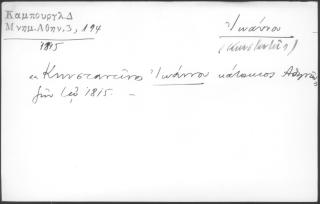 Καμπουργλ.Δ
Μνημ.Αθην.3, 194
1815
Ἰωάννου
(Κωνσταντῖνος)
Κωνσταντῖνο Ἰωάννου κάτοικος Ἀθηνῶν
1815. –